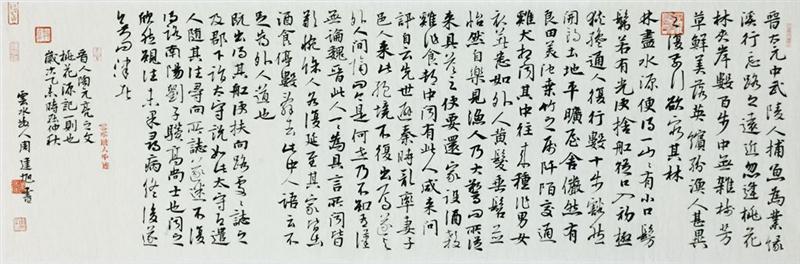 晉太元中武陵人捕魚為業緣
溪行忘路之遠近忽逢桃花
林夾岸數百步中無雜樹芳
草鮮美落英繽紛漁人甚異
之復前行欲窮其林
林盡水源便得一山山有小口髣
髴若有光便捨船從口入初極
狹纔通人復行數十步豁然
開朗土地平曠屋舍儼然有
良田美池桑竹之屬阡陌交通
雞犬相聞其中往來種作男女
衣著悉如外人黃髮垂髫並
怡然自樂見漁人乃大驚問所從
來具答之便要還家設酒殺
雞作食村中聞有此人咸來問
訊自云先世避秦時亂率妻子
邑人來此絕境不復出焉遂與
外人間隔問今是何世乃不知有漢
無論魏晉此人一一為具言所聞皆
歎惋餘人各復延至其家皆出
酒食停數日辭去此中人語云不
足為外人道也
既出得其船便扶向路處處誌之
及郡下詣太守說如此太守即遣
人隨其往尋向所誌遂迷不復
得路南陽劉子驥高尚士也聞之
欣然規往未果尋病終後遂
無問津者
晉人陶元亮之文
桃花源記一則也
歲次時在仲秋
雲水人周建旭書